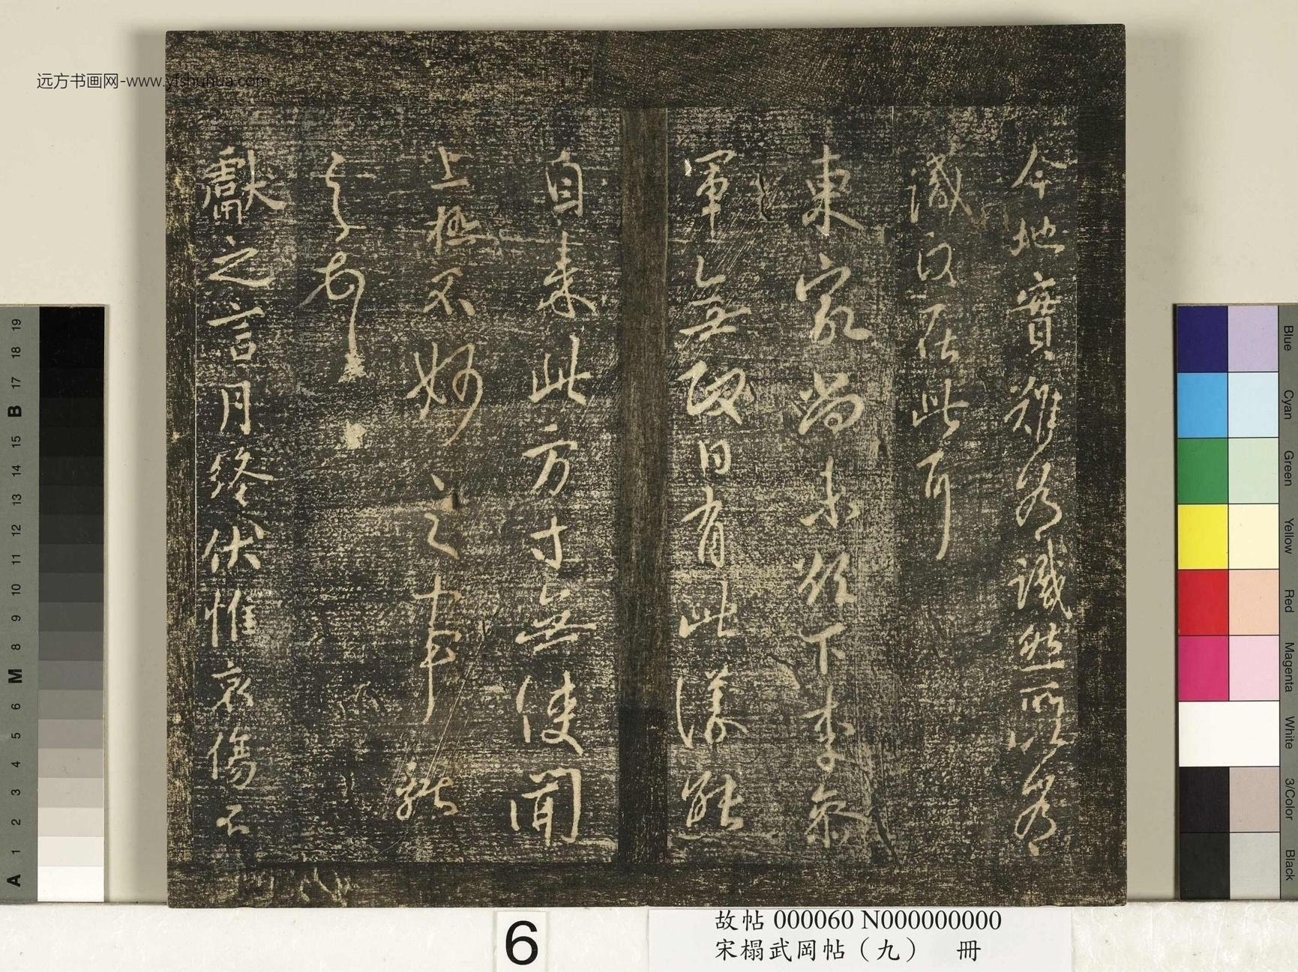 今地實難為識然所以為
識正在此耳
東家尚未欲下李參
軍無政日有此漾能
自來此方寸無使聞
上極不妙之事獻
之
獻之言月終伏惟哀傷不
远方书画网-www.yfshuhua.com
19
18
17
B
15
14
13
12
11
10
9
8
M
6
5
4
3
2
1
A
Blue
Cyan
Green
Yellow
Red
Magenta
White
3/Color
Black
6
故帖 000060 N000000000
宋榻武岡帖（九） 冊